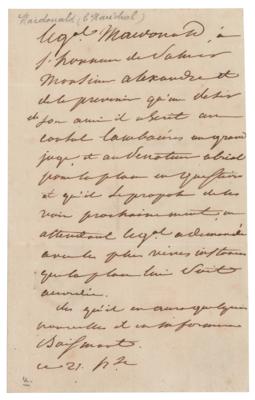 Macdonald (le Maréchal)
Le gal Macdonald, à
l'honneur de saluer
Monsieur alexandre et
de le prévenir qu'au désir
de son ami il a écrit au
consul cambacérès au grand
juge et au Senateur abrial
pour la place en question
et qu'il se propose de les
voir prochainement, en
attendant le gal a demandé
avec les plus vives instances
que la place lui soit
accordée.
dès qu'il en aura quelques
nouvelles il en informera
ce 21